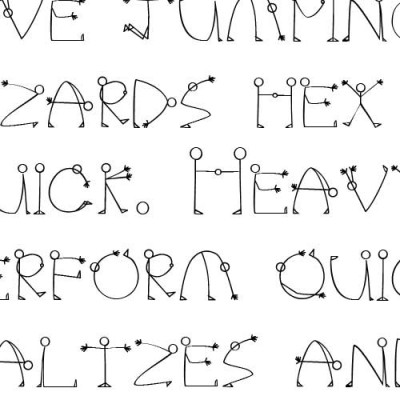 VE JUMPING
ZARDS HEX
UICK. HEAVY
ERFORM QUIC
ALTZES AND